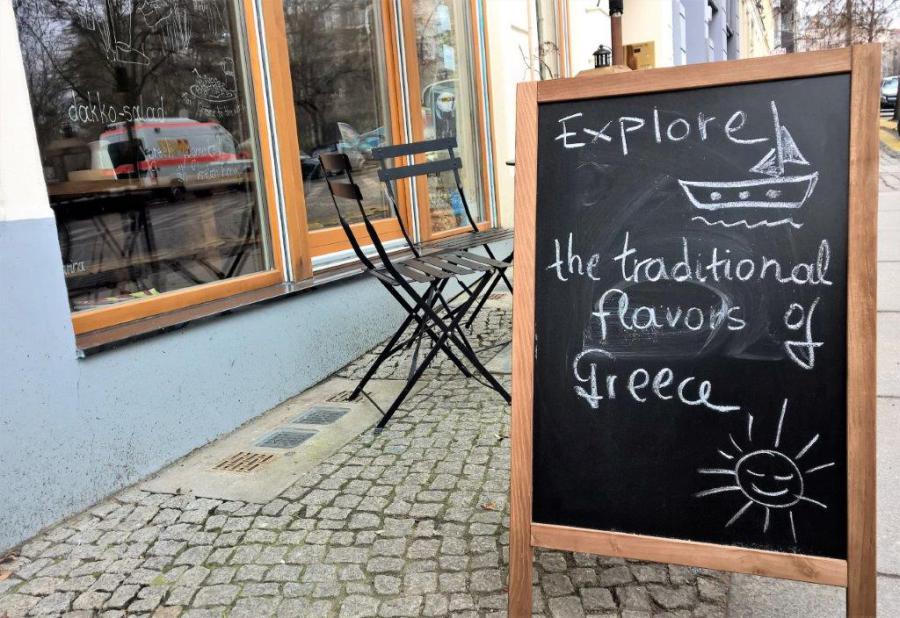 Explore
the traditional
flavors of
Greece
dakko-salad